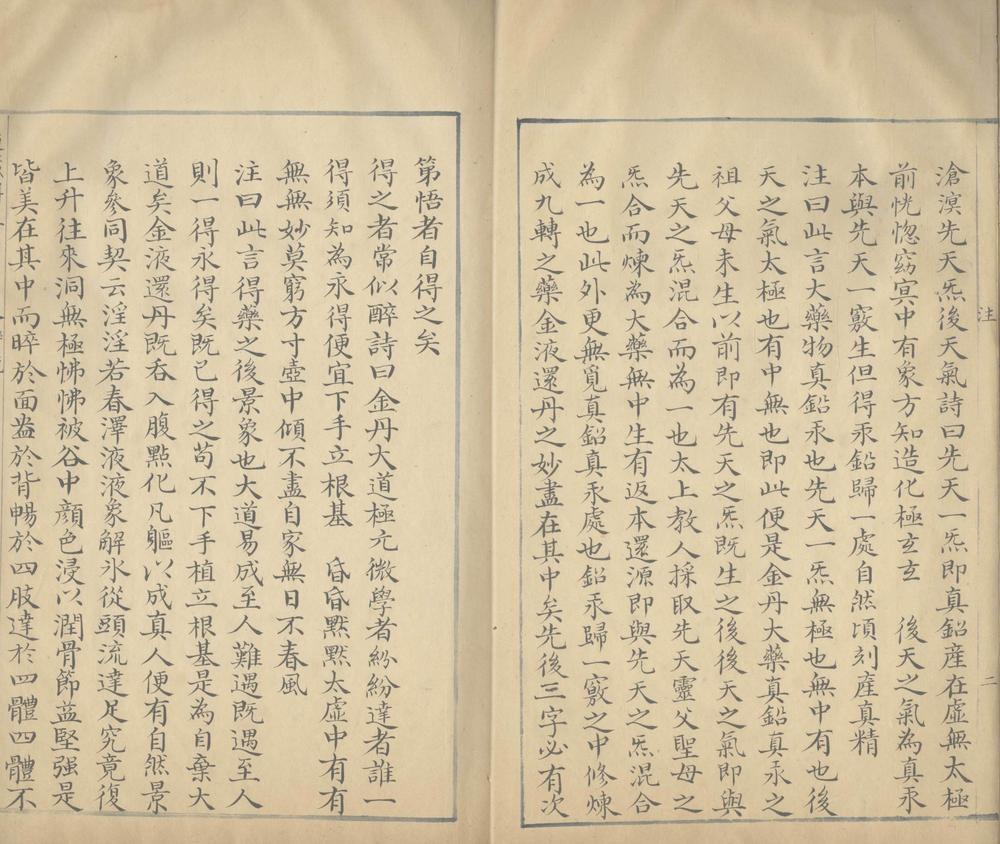 注
二
滄溟先天炁後天氣詩曰先天一炁即真鉛産在虛無太極
前恍惚窈冥中有象方知造化極玄玄　後天之氣為真汞
本與先天一竅生但得汞鉛歸一處自然頃刻産真精
注曰此言大藥物真鉛汞也先天一炁無極也無中有也後
天之氣太極也有中無也即此便是金丹大藥真鉛真汞之
祖父母未生以前即有先天之炁既生之後後天之氣即與
先天之炁混合而為一也太上教人採取先天靈父聖母之
炁合而煉為大藥無中生有返本還源即與先天之炁混合
為一也此外更無覓真鉛真汞處也鉛汞歸一竅之中修煉
成九轉之藥金液還丹之妙盡在其中矣先後三字必有次
第悟者自得之矣
得之者常似醉詩曰金丹大道極元微學者紛紛達者誰一
得須知為永得便宜下手立根基　昏昏默默太虛中有有
無無妙莫窮方寸壺中傾不盡自家無日不春風
注曰此言得藥之後景象也大道易成至人難遇既遇至人
則一得永得矣既已得之苟不下手植立根基是為自棄大
道矣金液還丹既吞入腹點化凡軀以成真人便有自然景
象參同契云淫淫若春澤液液象解氷從頭流達足究竟復
上升往來洞無極怫怫被谷中顔色浸以潤骨節益堅强是
皆美在其中而睟於面盎於背暢於四肢達於四體四體不